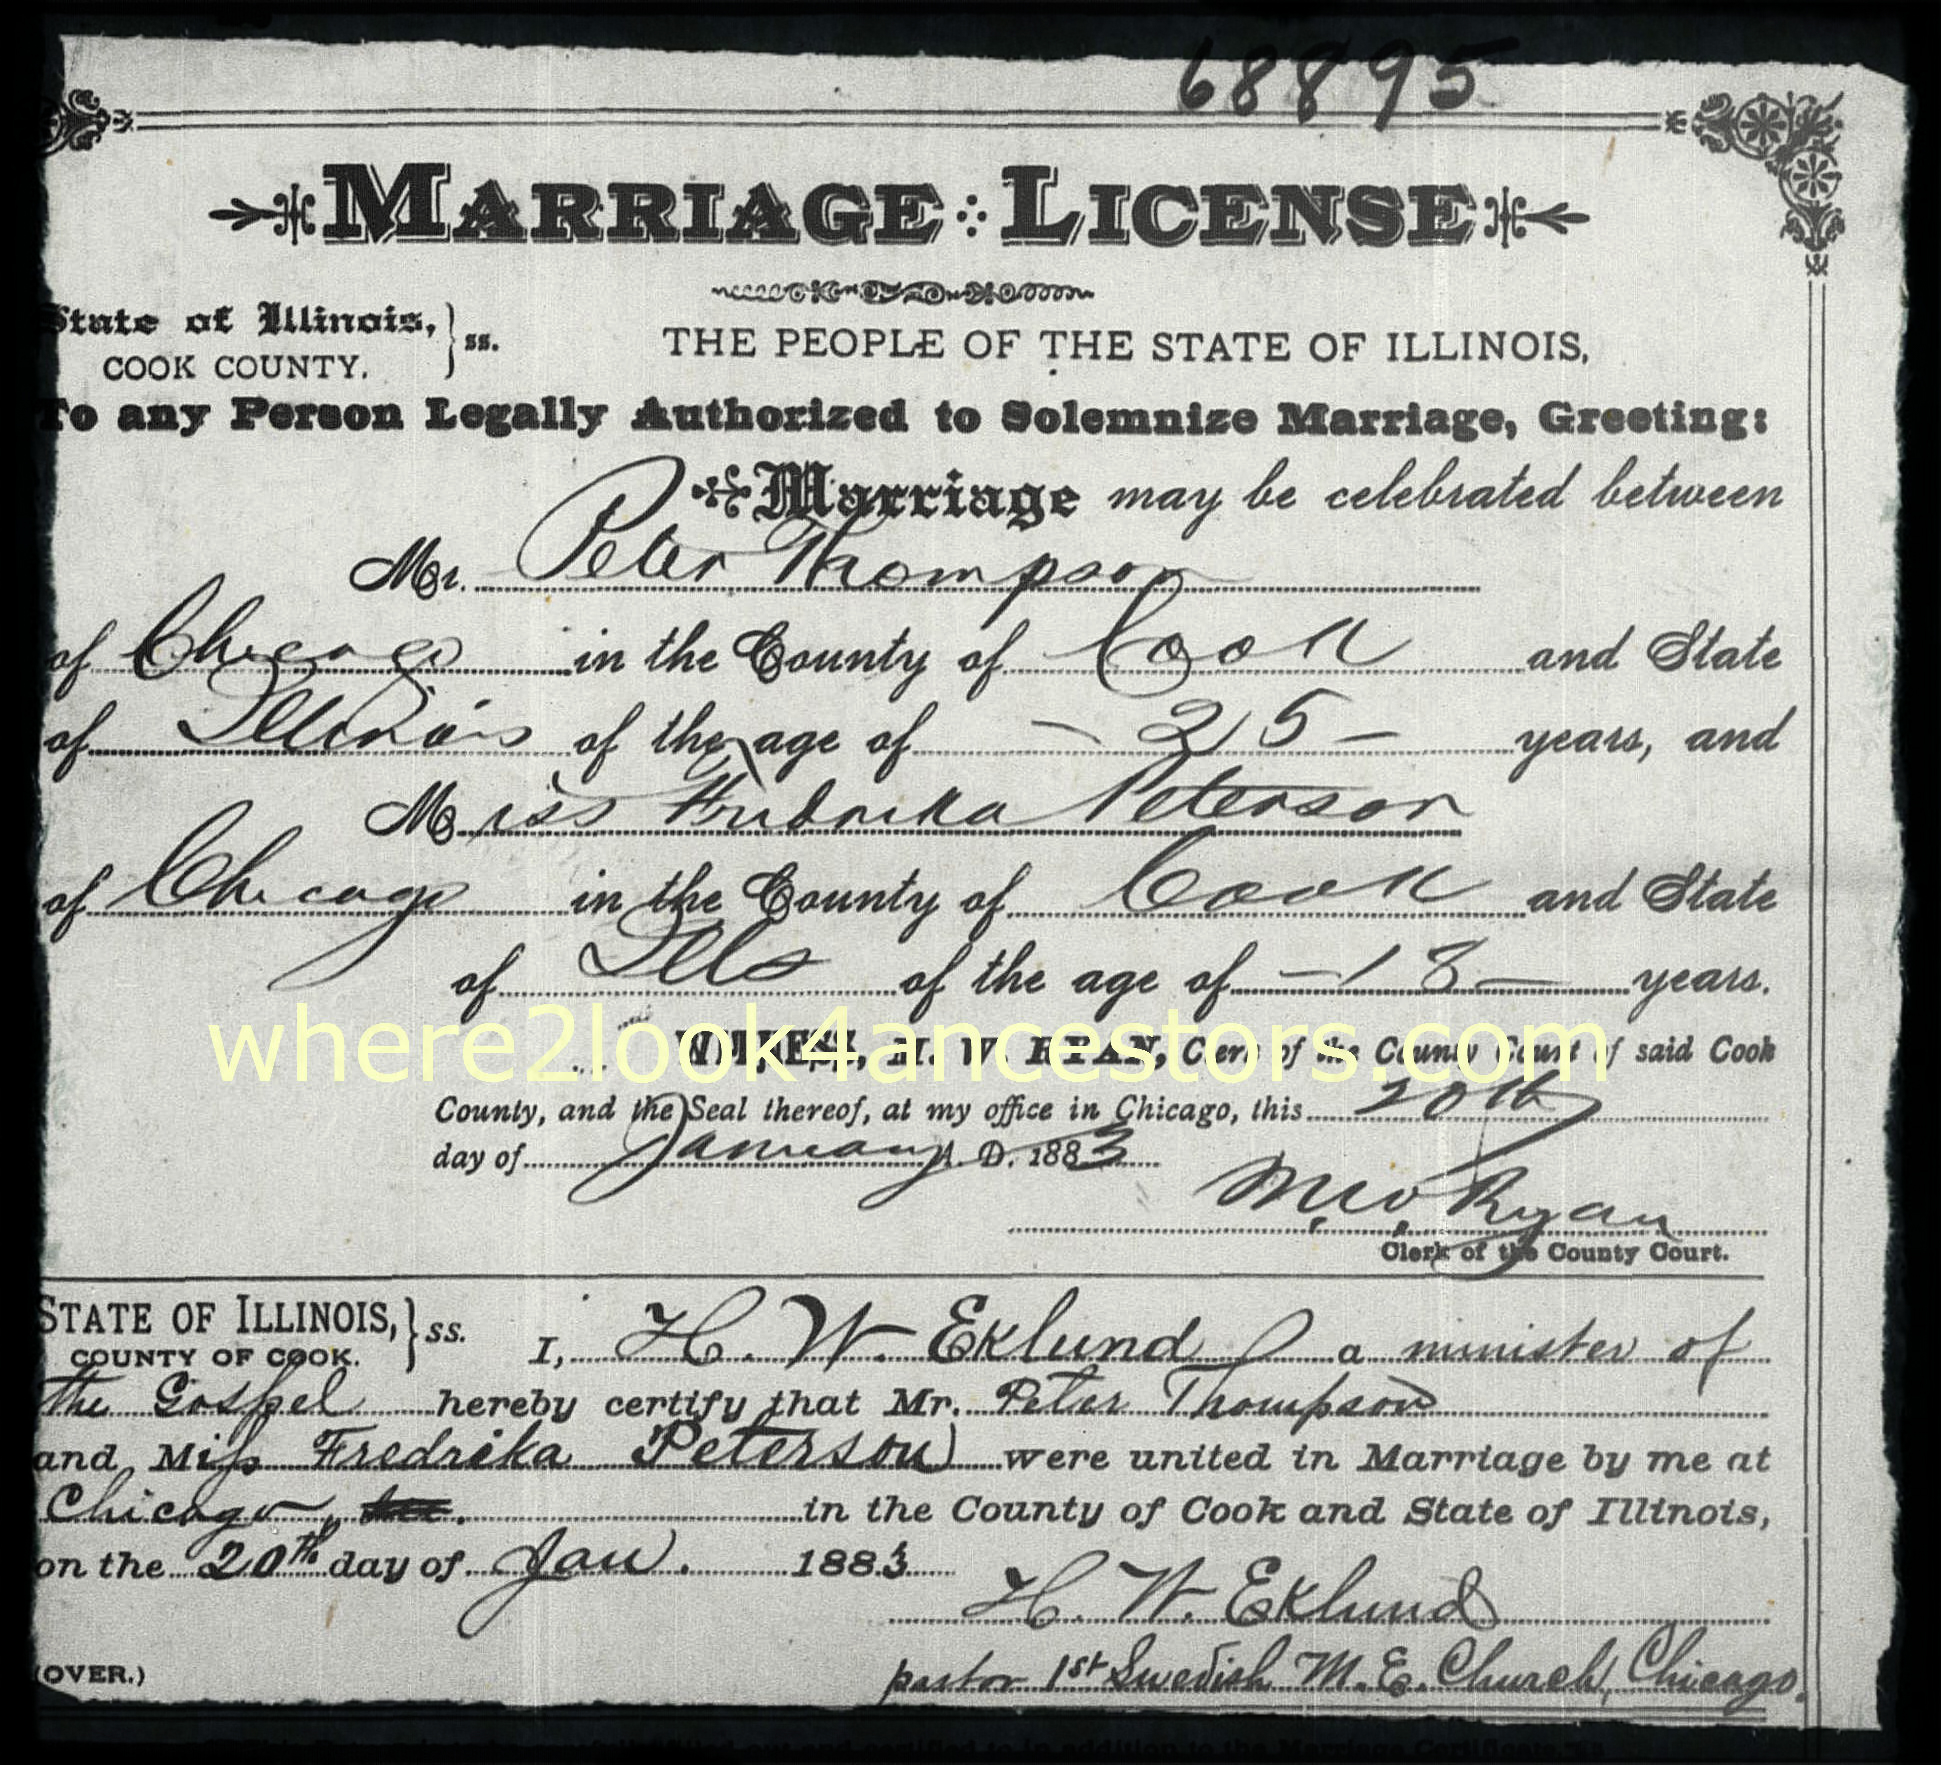 68895
MARRIAGE LICENSE
State of Illinois, } ss.
COOK COUNTY.
THE PEOPLE OF THE STATE OF ILLINOIS,
To any Person Legally Authorized to Solemnize Marriage, Greeting:
Marriage may be celebrated between
Mr. Peter Thompson
of Chicago in the County of Cook and State
of Illinois of the age of - 25 - years, and
Miss Fredrika Peterson
of Chicago in the County of Cook and State
of Ills of the age of - 18 - years.
where2look4ancestors.com
WITNESS, M. W. RYAN, Clerk of the County Court of said Cook
County, and the Seal thereof, at my office in Chicago, this 20th
day of January A. D. 1883
M. W. Ryan
Clerk of the County Court.
STATE OF ILLINOIS, } ss.
COUNTY OF COOK.
I, H. W. Eklund a minister of
the Gospel hereby certify that Mr. Peter Thompson
and Miss Fredrika Peterson were united in Marriage by me at
Chicago, in the County of Cook and State of Illinois,
on the 20th day of Jan. 1883
H. W. Eklund
(OVER.)
pastor 1st Swedish M. E. Church, Chicago.